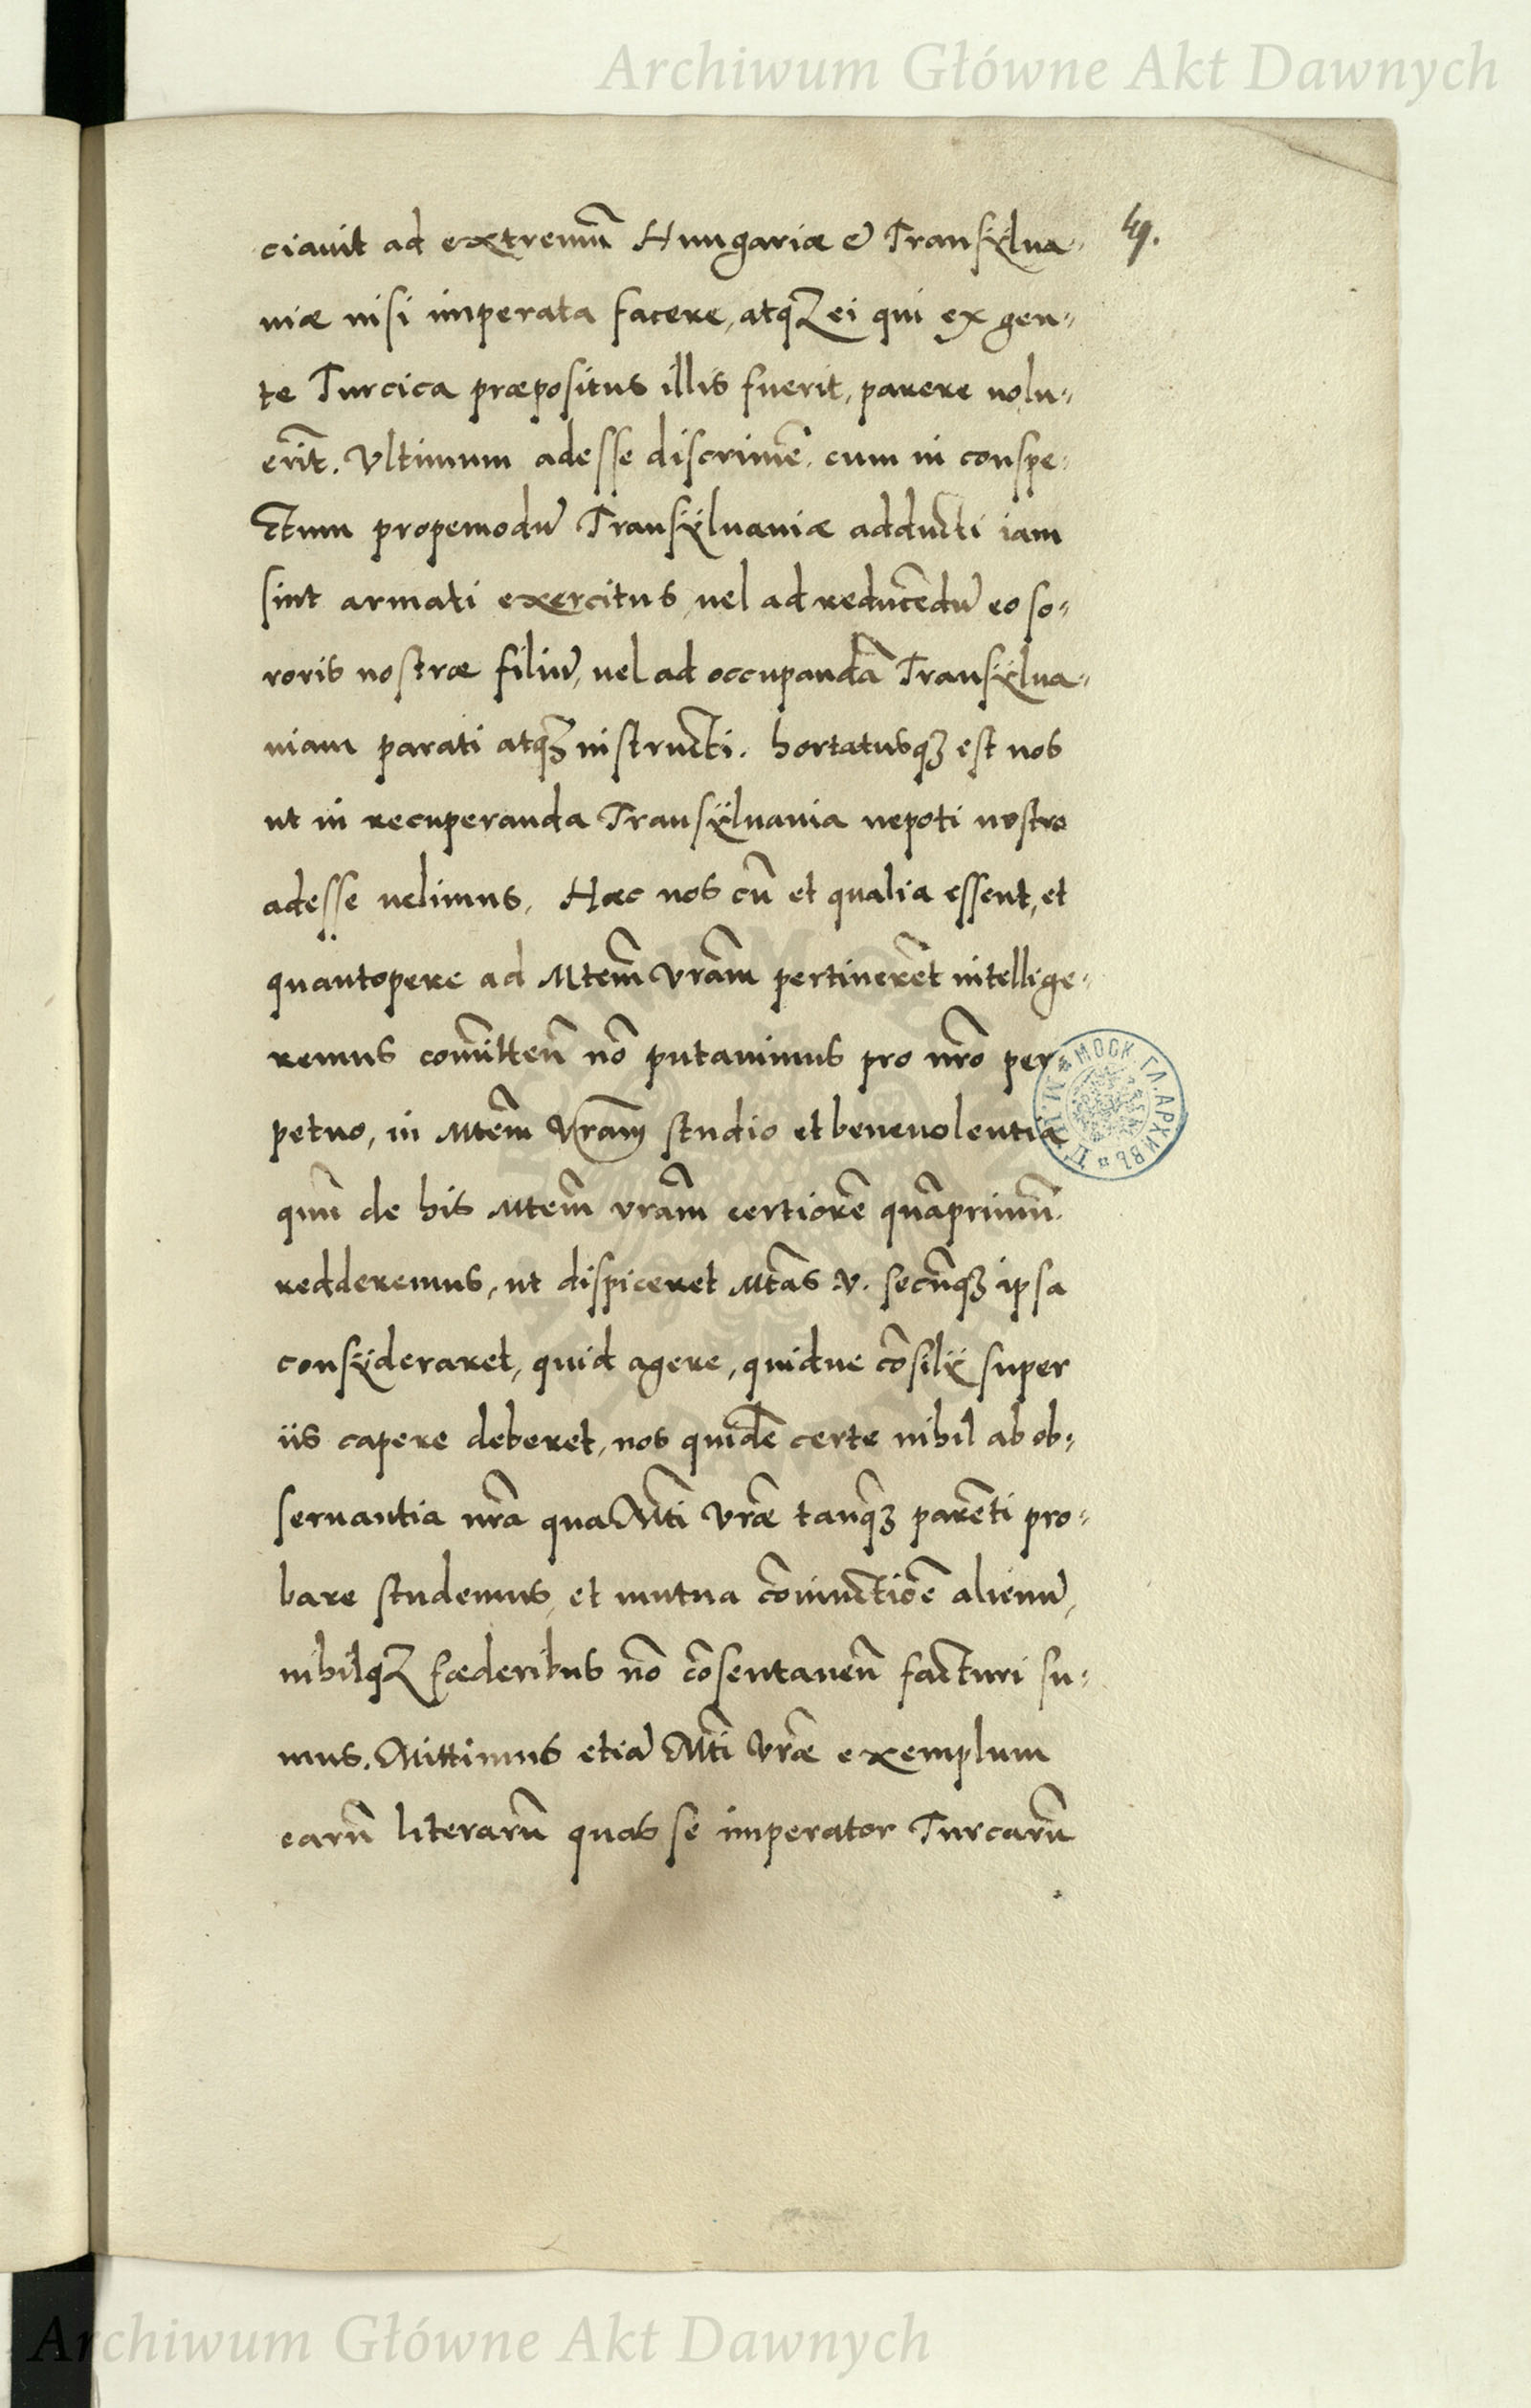 Archiwum Główne Akt Dawnych
49.
ciauit ad extremū Hungariæ & Transÿlua-
niæ nisi imperata facere, atq₃ ei qui ex gen-
te Turcica præpositus illis fuerit, parere uolu-
erīt. Vltimum adesse discrimē. cum in conspe-
ctum propemodū Transÿluaniæ adducti iam
sint armati exercitus, uel ad reducēdū eo so-
roris nostræ filiū, uel ad occupandā Transÿlua-
niam parati atq₃ instructi. hortatusq₃ est nos
ut in recuperanda Transÿluania nepoti nostro
adesse uelimus, Hæc nos cū et qualia essent, et
quantopere ad Mtem̄ Vram̄ pertinerēt intellige-
remus com̄ittēn nō putauimus pro nrō per
petuo, in Mtem̄ Vram̄ studio et beneuolentia
quin de his Mtem̄ vram̄ certiorē quāprimū
redderemus, ut dispiceret Mtās V. secūq₃ ipsa
consÿderaret, quid agere, quidue cōsilÿ super
iis capere deberet, nos quidē certe nihil ab ob-
seruantia nrā qua Mti Vræ tanq̄₃ parēti pro-
bare studemus, et mutua cōiunctiōe alienū,
nihilq₃ fœderibus nō cōsentaneū facturi su-
mus. Mittimus etiā Mti Vræ exemplum
earū literarū quas se imperator Turcarū
МОСК. ГЛ. АРХИВЪ
Archiwum Główne Akt Dawnych